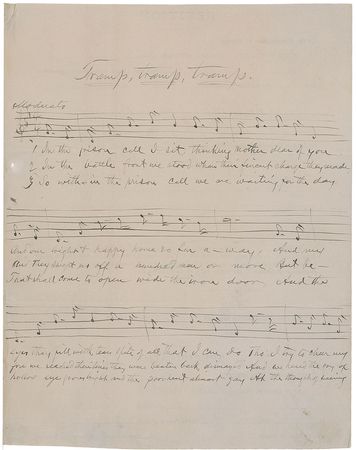 Tramp, tramp, tramp.
Moderato
1 In the prison cell I sit thinking Mother dear of you
2 In the battle front we stood when their fiercest charge they made
3 So within the prison cell we are waiting for the day
And our bright & happy home so far a-way. And the
And they swept us off a hundred men or more But be-
That shall come to open wide the iron door And the
eyes they fill with tears spite of all that I can do Tho' I try to cheer my
fore we reached their lines they were beaten back dismayed And we heard the cry of
hollow eye grows bright and the poor heart almost gay As the thought of seeing